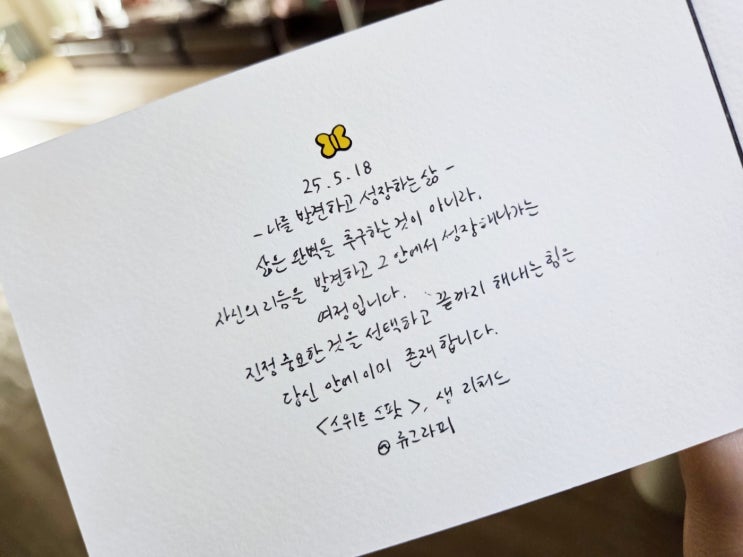 25.5.18
- 나를 발견하고 성장하는 삶 -
삶은 완벽을 추구하는것이 아니라,
자신의 리듬을 발견하고 그 안에서 성장해나가는
여정입니다.
진정 중요한 것을 선택하고 끝까지 해내는 힘은
당신 안에 이미 존재합니다.
<스위트 스팟>, 샘 리처드
류그라피